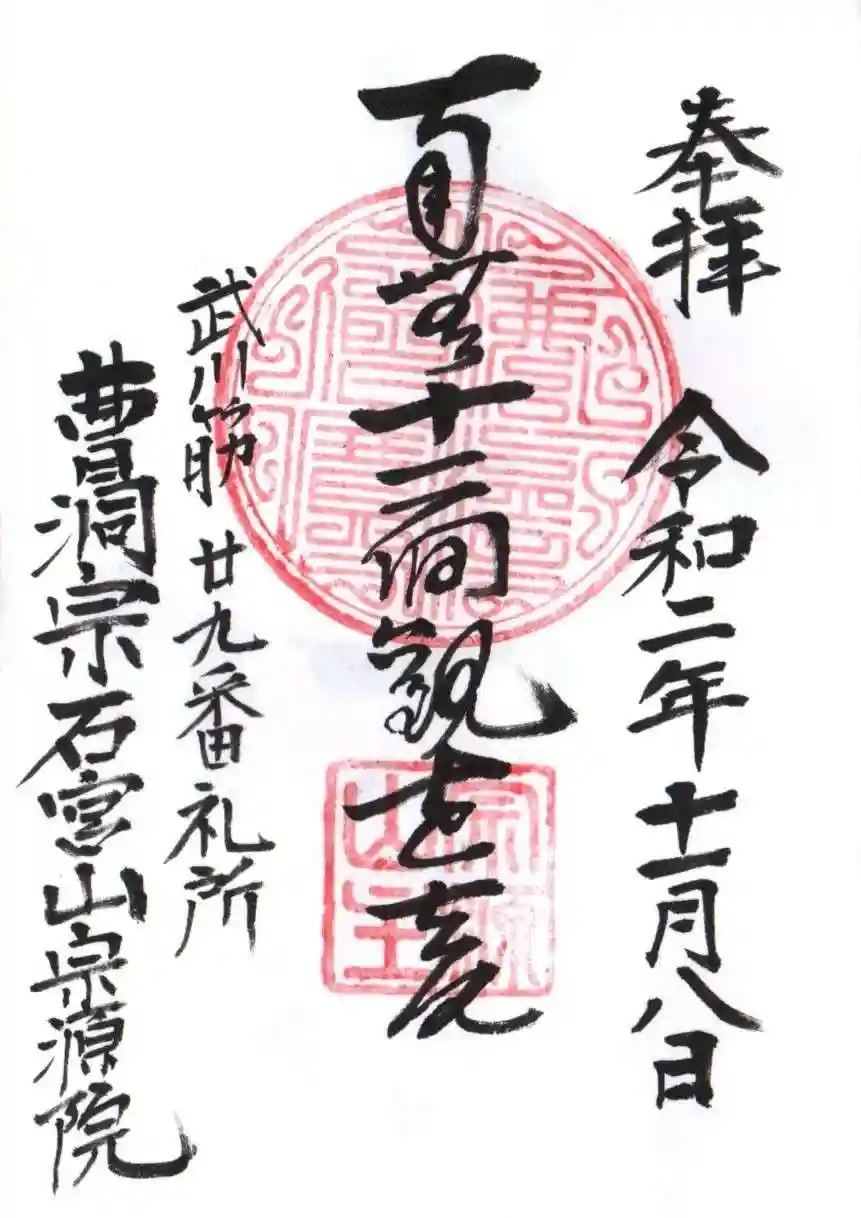 奉拝 令和二年十一月八日
南無十一面観世音
武川筋 廿九番礼所
曹洞宗石宮山宗源院
宗源
山主